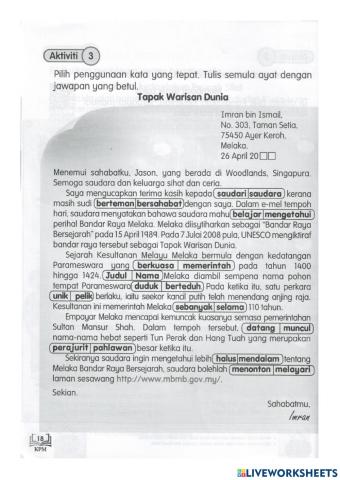 Aktiviti 3
Pilih penggunaan kata yang tepat. Tulis semula ayat dengan
jawapan yang betul.
Tapak Warisan Dunia
Imran bin Ismail,
No. 303, Taman Setia,
75450 Ayer Keroh,
Melaka.
26 April 20□□
Menemui sahabatku, Jason, yang berada di Woodlands, Singapura.
Semoga saudara dan keluarga sihat dan ceria.
Saya mengucapkan terima kasih kepada saudari | saudara kerana
masih sudi berteman | bersahabat dengan saya. Dalam e-mel tempoh
hari, saudara menyatakan bahawa saudara mahu belajar | mengetahui
perihal Bandar Raya Melaka. Melaka diisytiharkan sebagai "Bandar Raya
Bersejarah" pada 15 April 1989. Pada 7 Julai 2008, UNESCO mengiktiraf
bandar raya tersebut sebagai Tapak Warisan Dunia.
Sejarah Kesultanan Melayu Melaka bermula dengan kedatangan
Parameswara yang berkuasa | memerintah pada tahun 1400
hingga 1424. Judul | Nama Melaka diambil sempena nama pohon
tempat Parameswara duduk | berteduh. Pada ketika itu, satu perkara
unik | pelik berlaku, iaitu seekor kancil putih telah menendang anjing raja.
Kesultanan ini memerintah Melaka sebanyak | selama 110 tahun.
Empayar Melaka mencapai kemuncak kuasanya semasa pemerintahan
Sultan Mansur Shah. Dalam tempoh tersebut, datang | muncul
nama-nama hebat seperti Tun Perak dan Hang Tuah yang merupakan
perajurit | pahlawan besar ketika itu.
Sekiranya saudara ingin mengetahui lebih halus | mendalam tentang
Melaka Bandar Raya Bersejarah, saudara bolehlah menonton | melayari
laman sesawang http://www.mbmb.gov.my/.
Sekian.
Sahabatmu,
Imran
18
KPM
LIVEWORKSHEETS